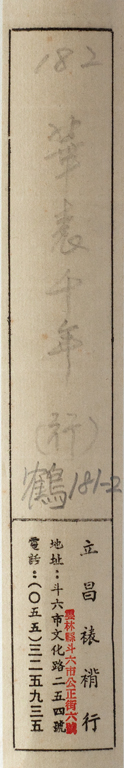 18.2
華表千年
(行)
鶴181-2
立昌裱褙行
雲林縣斗六市公正街六號
地址：斗六市文化路二五四號
電話：(〇五五)三二五九三五